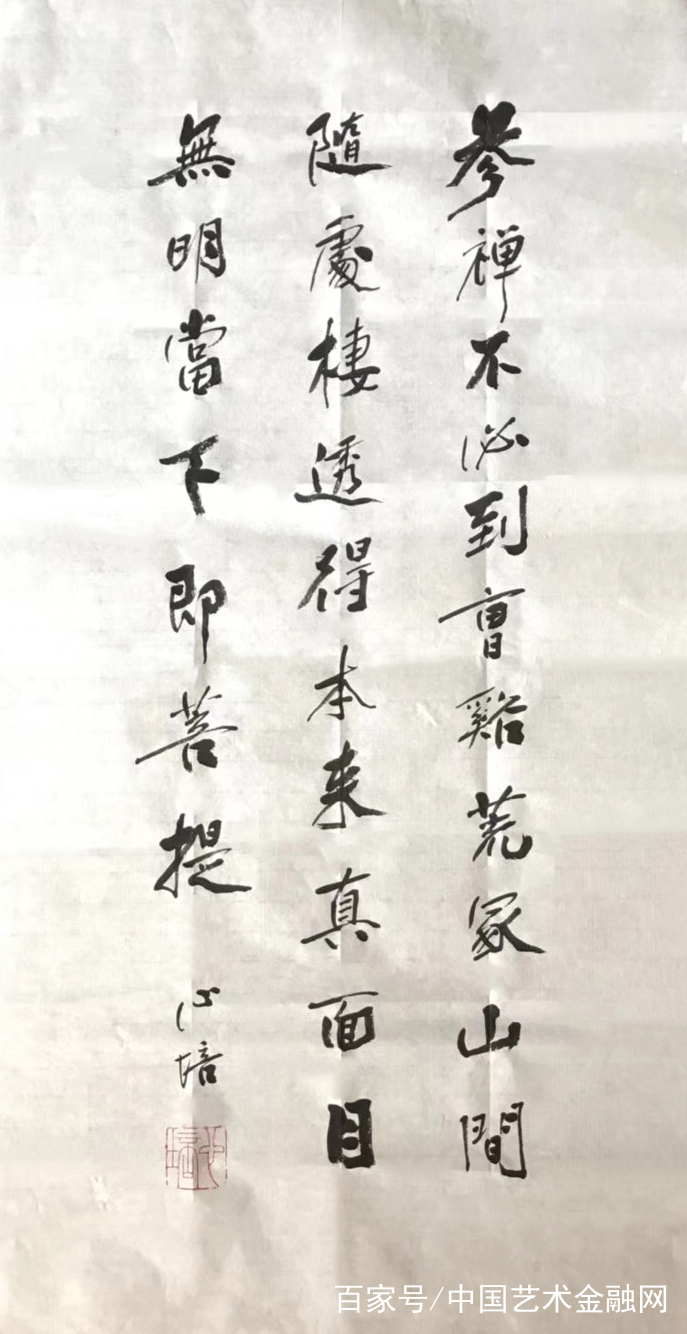 參禅不必到曹谿荒冢山間
隨處棲透得本来真面目
無明當下即菩提
心培
百家号/中国艺术金融网